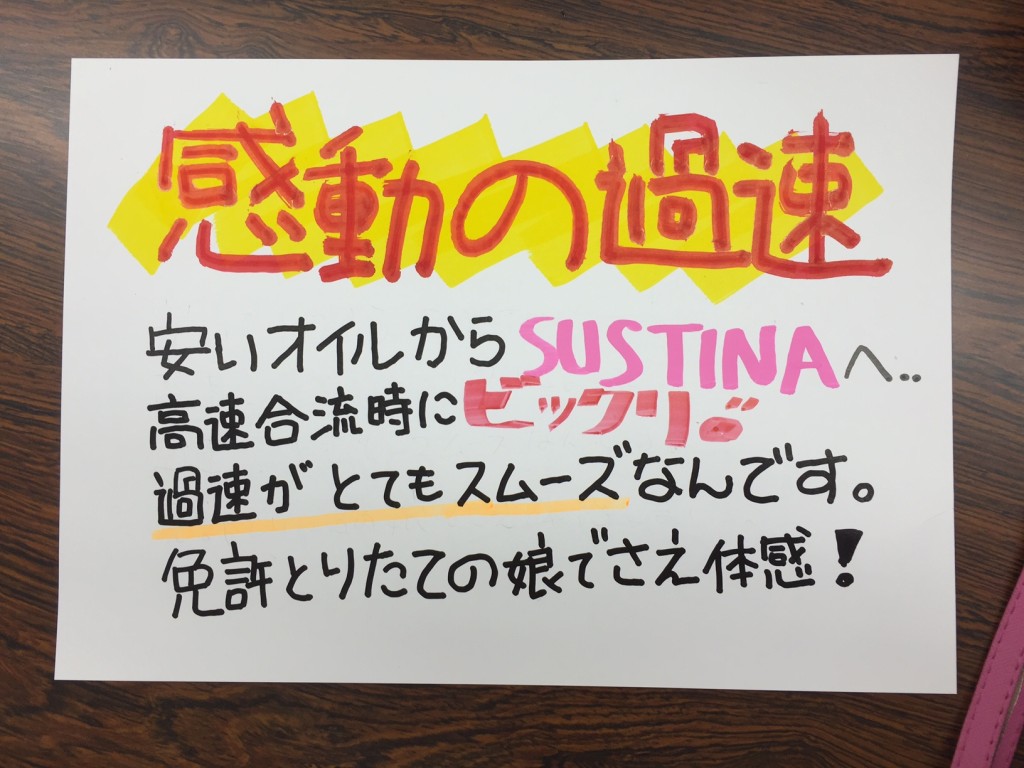 感動の過速
安いオイルからSUSTINAへ..
高速合流時にビックリ!!
過速がとてもスムーズなんです。
免許とりたての娘でさえ体感！